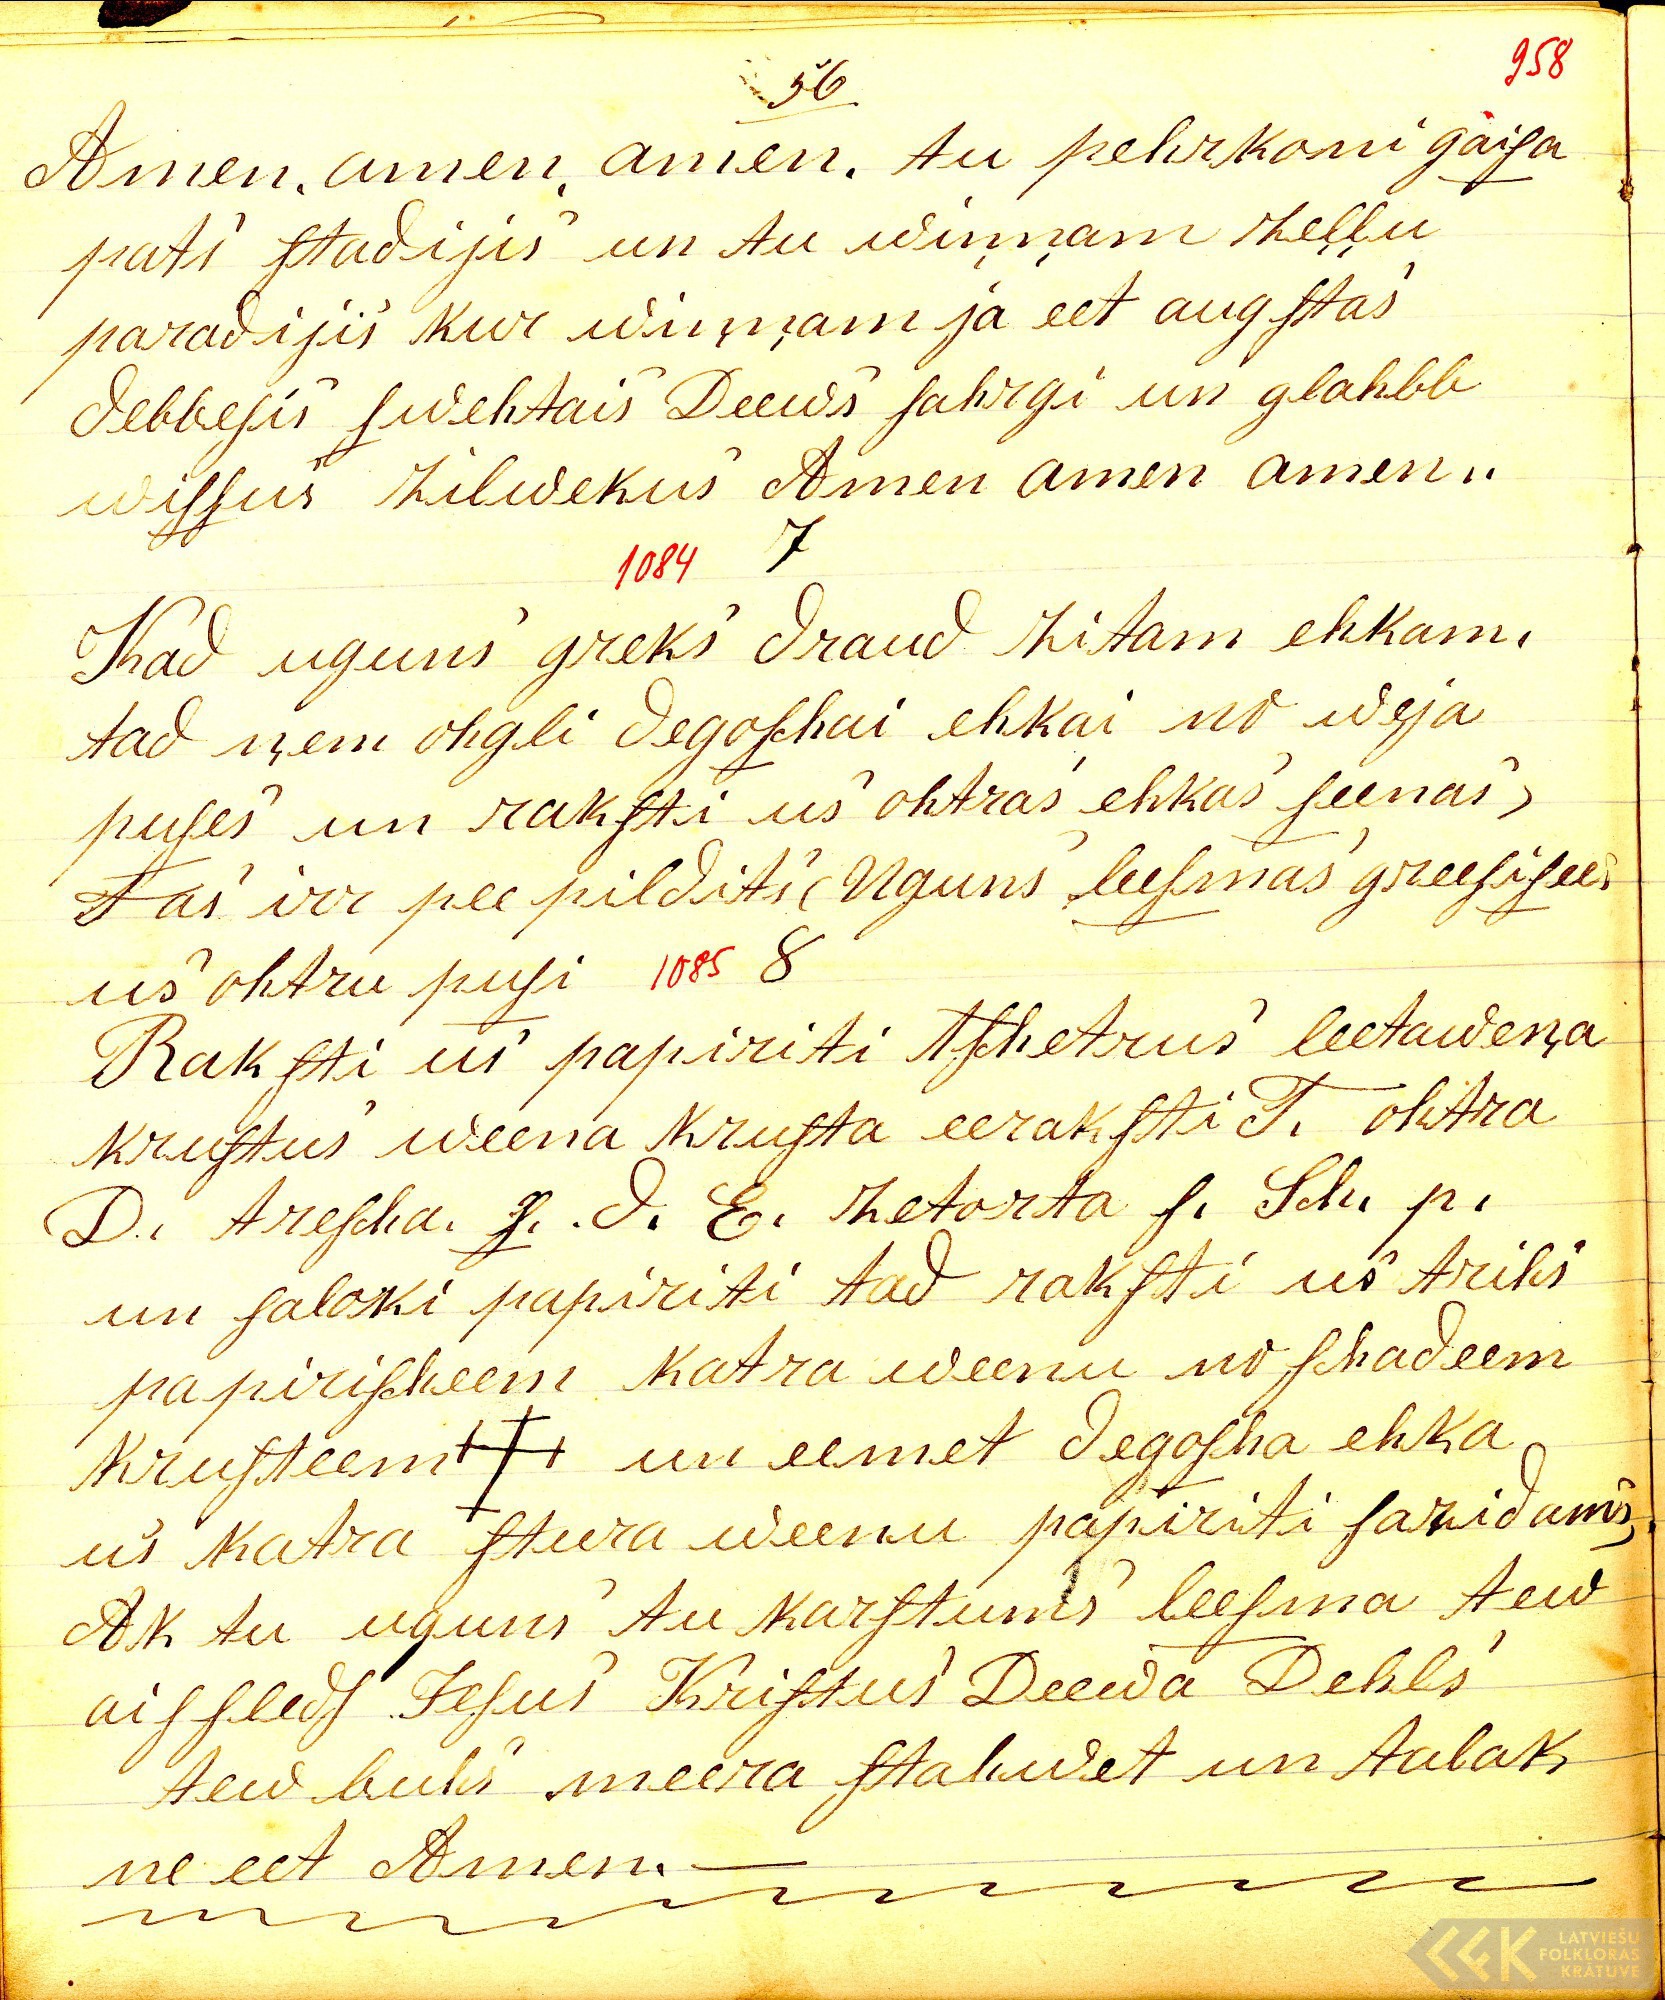 958
56
Amen, amen, amen. tu pehrkoni gaiſa
pats ſtadijis un tu winņam zeļļu
paradijis kur winņam ja eet augſtas
debbeſis ſwehtais Deews ſahrgi un glahbb
wiſſus zilwekus Amen amen amen„
1084 7
Kad uguns greks draud zitam ehkam,
tad ņem ohgli degoſchai ehkai no weja
puſes un rakſti us ohtras ehkas ſeenas,
Tas irr pee pildits (Uguns leeſmas greeſiſees
us ohtru puſi 1085 8
Rakſti us papiriti tſchetrus leetaweņa
kruſtus weena kruſta eerakſti T. ohtra
D. treſcha. ſ. d. E. zetorta ſ. Sch. p.
un ſaloki papiriti tad rakſti us trihs
papiriſcheem katra weenu no ſchadeem
kruſteem ††† un eemet degoſcha ehka
us katra ſtura weenu papiriti ſazidams,
Ak tu uguns tu karſtums leeſma tew
aiſſledſ Jeſus Kriſtus Deewa Dehls
tew buhs meera ſtahwet un tahlak
ne eet Amen. —
LATVIEŠU
FOLKLORAS
KRĀTUVE